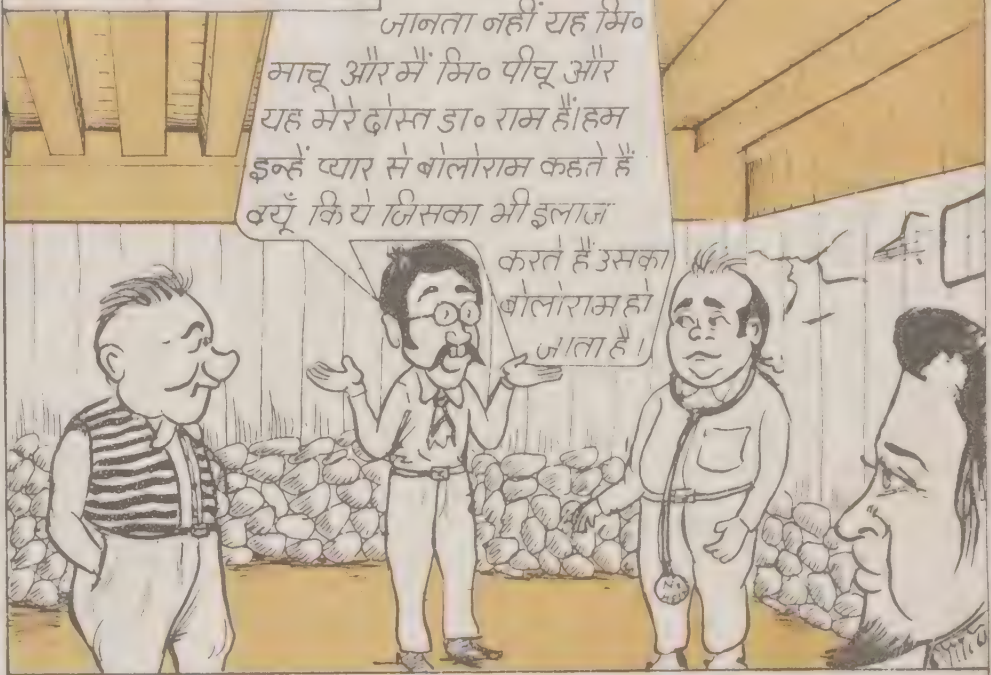 जानता नहीं यह मि॰
माचू और मैं मि॰ पीचू और
यह मेरे दोस्त डा॰ राम हैं।हम
इन्हें प्यार से बोलोराम कहते हैं
क्यूँ कि ये जिसका भी इलाज
करते हैं उसका
बोलोराम हो
जाता है।